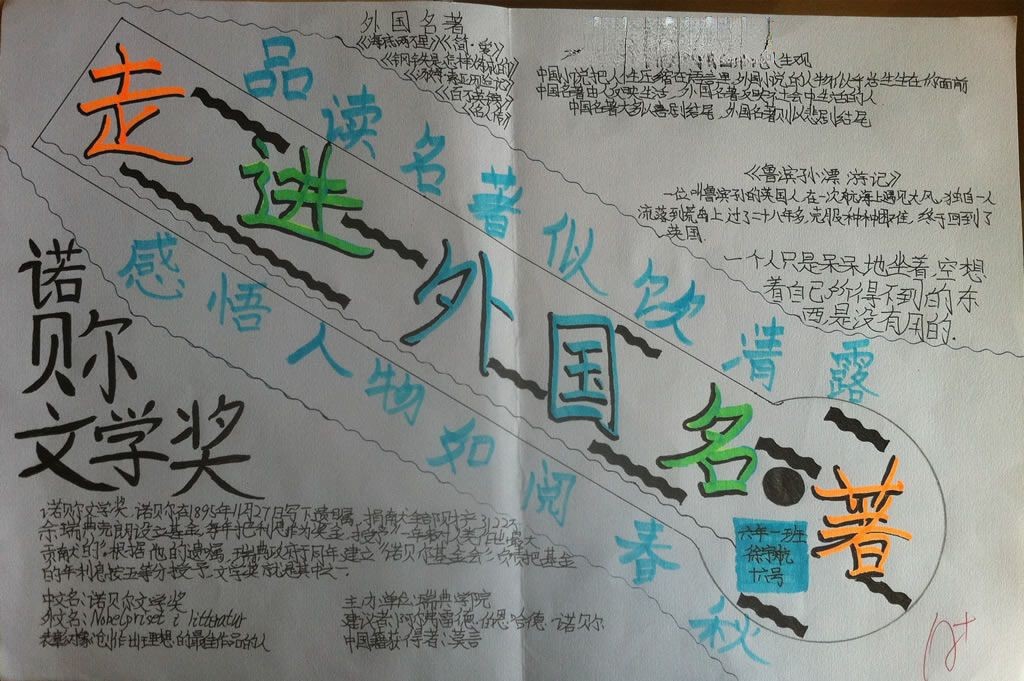 外国名著
《海底两万里》《简·爱》
《钢铁是怎样炼成的》
《汤姆·索亚历险记》
《名人传》
生观
中国小说把人生压缩在语言里,外国小说的人物似乎总生生在你面前
中国名著由人反映生活,外国名著反映社会中生活的人
中国名著大多以喜剧结尾,外国名著则以悲剧结尾
《鲁滨孙漂游记》
一位叫鲁滨孙的英国人,在一次航海上遇见大风,独自一人
流落到荒岛上,过了二十八年多,克服种种困难,终于回到了
英国.
一个人只是呆呆地坐着,空想
着自己所得不到的东
西,是没有用的.
走进外国名著
品读名著似饮清露
感悟人物如阅春秋
诺
贝尔
文学奖
诺贝尔文学奖,诺贝尔在1895年11月27日写下遗嘱,捐献全部财产
3122万
余瑞典克朗设立基金,每年把利息作为奖金,授予
贡献的".根据他的遗嘱,瑞典政府于同年建立"诺贝尔基金会",负责把基金
的年利息按五等分授予.文学奖就是其中之一.
中文名:诺贝尔文学奖
外文名:Nobelpriset i litteratur
表彰对像:创作出理想的最佳作品的人
主办单位:瑞典学院
建议者:阿尔弗雷德·伯恩哈德·诺贝尔
中国籍获得者:莫言
六年一班
徐宇航
十六号